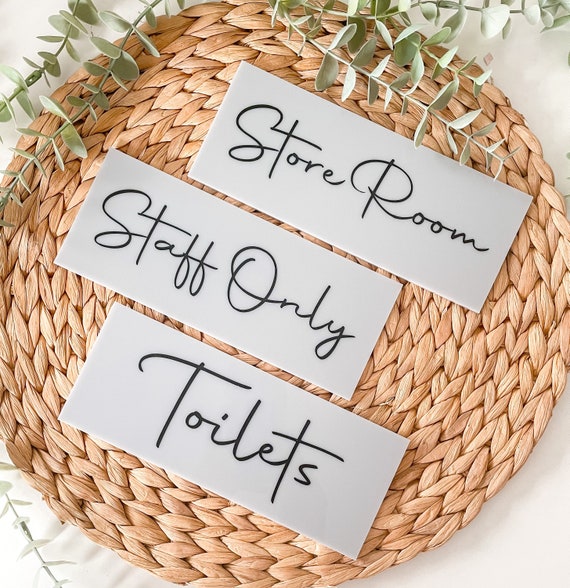 Store Room
Staff Only
Toilets